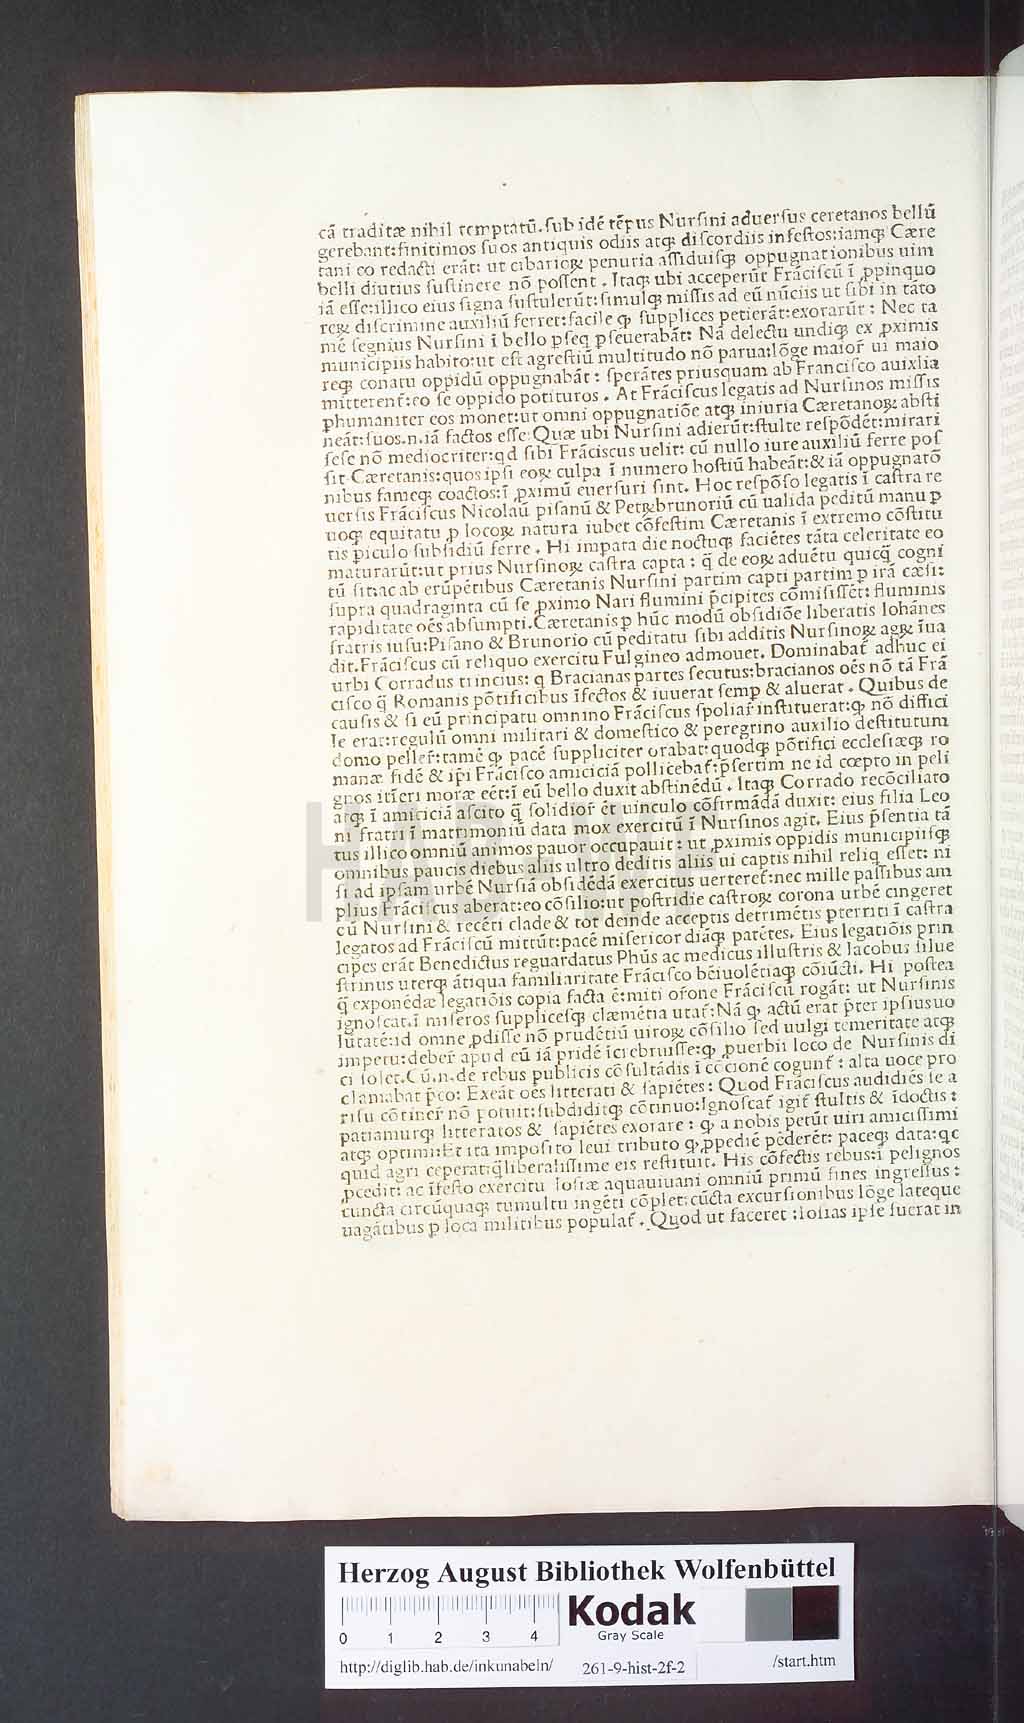 cā traditæ nihil temptatū. sub idē tēpus Nursini aduersus ceretanos bellū
gerebant: finitimos suos antiquis odiis atqꝫ discordiis infestos: iamqꝫ Cære
tani eo redacti erāt: ut cibarioꝝ penuria assiduisqꝫ oppugnationibus uim
belli diutius sustinere nō possent. Itaqꝫ ubi acceperūt Frāciscū ī ꝓpinquo
iā esse: illico eius signa sustulerūt: simulqꝫ missis ad eū nūciis ut sibi in tāto
reꝝ discrimine auxiliū ferret: facile ꝙ supplices petierāt: exorarūt: Nec ta
mē segnius Nursini ī bello ꝑseq ꝑseuerabāt: Nā delectu undiqꝫ ex ꝓximis
municipiis habito: ut est agrestiū multitudo nō parua: lōge maior̄ ui maio
reqꝫ conatu oppidū oppugnabāt: sperātes priusquam ab Francisco auixlia
mitterent̄: eo se oppido potituros. At Frāciscus legatis ad Nursinos missis
ꝑhumaniter eos monet: ut omni oppugnatiōe atqꝫ iniuria Cæretanoꝝ absti
neāt: suos .n. iā factos esse: Quæ ubi Nursini adierūt: stulte respōdēt: mirari
sese nō mediocriter: qd sibi Frāciscus uelit: cū nullo iure auxiliū ferre pos
sit Cæretanis: quos ipsi eoꝝ culpa ī numero hostiū habeāt: & iā oppugnatō
nibus fameqꝫ coactos: ī ꝓximū euersuri sint. Hoc respōso legatis ī castra re
uersis Frāciscus Nicolaū pisanū & Petꝝbrunoriū cū ualida peditū manu ꝑ
uoqꝫ equitatu ꝓ locoꝝ natura iubet cōfestim Cæretanis ī extremo cōstitu
tis ꝑiculo subsidiū ferre. Hi impata die noctuqꝫ faciētes tāta celeritate eo
maturarūt: ut prius Nursinoꝝ castra capta: q̄ de eoꝝ aduētu quicq̄ cogni
tū sit: ac ab erūpētibus Cæretanis Nursini partim capti partim ꝑ irā cæsi:
supra quadraginta cū se ꝓximo Nari flumini p̄cipites cōmisissēt: fluminis
rapiditate oēs absumpti. Cæretanis ꝑ hūc modū obsidiōe liberatis Iohānes
fratris iusu: Pisano & Brunorio cū peditatu sibi additis Nursinoꝝ agꝝ īua
dit. Frāciscus cū reliquo exercitu Fulgineo admouet. Dominabat̄ adhuc ei
urbi Corradus trincius: q Bracianas partes secutus: bracianos oēs nō tā Frā
cisco q̄ Romanis pōtificibus īfectos & iuuerat semꝑ & aluerat. Quibus de
causis & si eū principatu omnino Frāciscus spoliar̄ instituerat: ꝙ nō diffici
le erat: regulū omni militari & domestico & peregrino auxilio destitutum
domo peller̄: tamē ꝙ pacē suppliciter orabat: quodqꝫ pōtifici ecclesiæqꝫ ro
manæ fidē & ip̄i Frācisco amiciciā pollicebat̄: p̄sertim ne id cœpto in peli
gnos itīeri moræ eēt: ī eū bello duxit abstinēdū. Itaqꝫ Corrado recōciliato
atqꝫ ī amiciciā ascito q̄ solidior̄ ēt uinculo cōfirmādā duxit: eius filia Leo
ni fratri ī matrimoniū data mox exercitū ī Nursinos agit. Eius p̄sentia tā
tus illico omniū animos pauor occupauit: ut ꝓximis oppidis municipiisqꝫ
omnibus paucis diebus aliis ultro deditis aliis ui captis nihil reliq esset: ni
si ad ipsam urbē Nursiā obsidēdā exercitus uerteret̄: nec mille passibus am
plius Frāciscus aberat: eo cōsilio: ut postridie castroꝝ corona urbē cingeret
cū Nursini & recēti clade & tot deinde acceptis detrimētis ꝑterriti ī castra
legatos ad Frāciscū mittūt: pacē misericordiāqꝫ patētes. Eius legatiōis prin
cipes erāt Benedictus reguardatus Phūs ac medicus illustris & Iacobus silue
strinus uterqꝫ ātiqua familiaritate Frācisco bēiuolētiaqꝫ cōiūcti. Hi postea
q̄ exponēdæ legatiōis copia facta ē: miti or̄one Frāciscū rogāt: ut Nursinis
ignoscat: ī miseros supplicesqꝫ clæmētia utat̄: Nā ꝙ actū erat p̄ter ipsius uo
lūtatē: id omne ꝓdisse nō prudētiū uiroꝝ cōsilio sed uulgi temeritate atqꝫ
impetu: deber̄ apud eū iā pridē īcrebruisse: ꝙ ꝓuerbii loco de Nursinis di
ci solet. Cū .n. de rebus publicis cōsultādis ī cōcionē cogunt̄: alta uoce pro
clamabat p̄co: Exeāt oēs litterati & sapiētes: Quod Frāciscus audidiēs se a
risu cōtiner̄ nō potuit: subdiditqꝫ cōtinuo: Ignoscat̄ igit̄ stultis & īdoctis:
patiamurqꝫ litteratos & sapiētes exorare: ꝙ a nobis petūt uiri amicissimi
atqꝫ optimi: Et ita imposito leui tributo ꝙ ꝓpediē pēderēt: paceqꝫ data: qc
quid agri ceperat: q̄liberalissime eis restituit. His cōfectis rebus: ī pelignos
ꝓcedit: ac īfesto exercitu Iosiæ aquauiuani omniū primū fines ingressus:
cuncta circūquaqꝫ tumultu ingēti cōplet: cūcta excursionibus lōge lateque
uagātibus ꝑ loca militibus populat̄. Quod ut faceret: Iosias ipse fuerat in
HAB-WF
Herzog August Bibliothek Wolfenbüttel
0 1 2 3 4
Kodak
Gray Scale
http://diglib.hab.de/inkunabeln/ 261-9-hist-2f-2 /start.htm